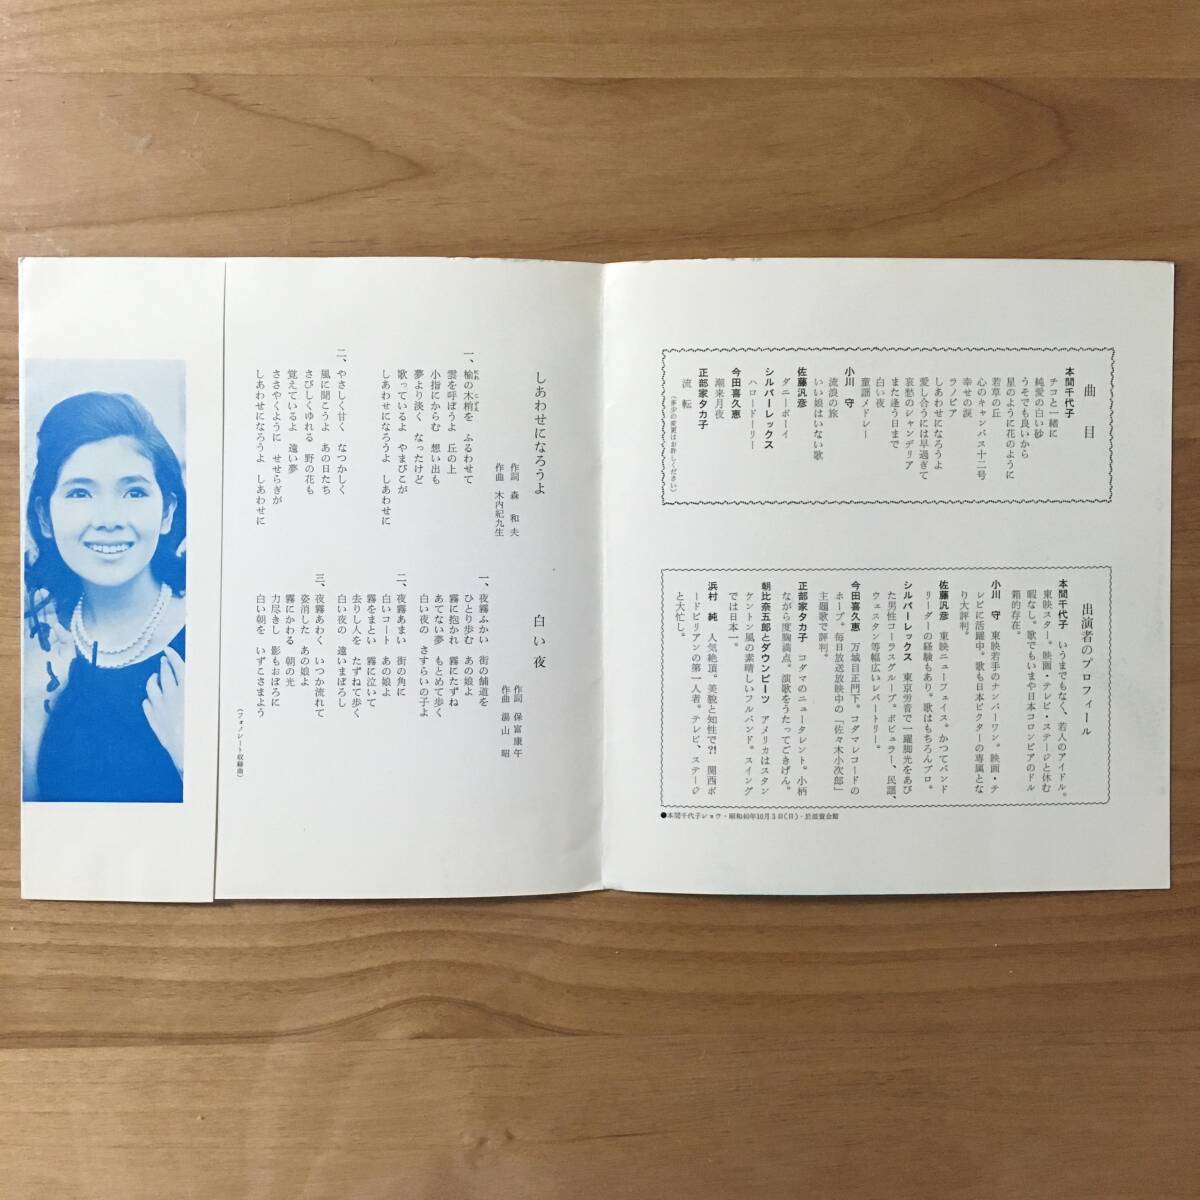 曲目
本間千代子
チコと一緒に
純愛の白い砂
うそでも良いから
星のように花のように
若草の丘
心のキャンバス十二号
幸せの涙
ラノビア
しあわせになろうよ
愛し合うには早過ぎて
哀愁のシャンデリア
また逢う日まで
白い夜
童謡メドレー
小川 守
流浪の旅
いい娘はいない歌
佐藤汎彦
ダニーボーイ
シルバーレックス
ハロードーリー
今田喜久恵
潮来月夜
正部家タカ子
流転
(多少の変更はお許しください)
出演者のプロフィール
本間千代子 いうまでもなく、若人のアイドル。
東映スター。映画・テレビ・ステージと休む
暇なし。歌でもいまや日本コロンビアのドル
箱的存在。
小川 守 東映若手のナンバーワン。映画・テ
レビに活躍中。歌も日本ビクターの専属とな
り大評判。
佐藤汎彦 東映ニューフェイス。かつてバンド
リーダーの経験もあり。歌はもちろんプロ。
シルバーレックス 東京労音で一躍脚光をあび
た男性コーラスグループ。ポピュラー、民謡、
ウェスタン等幅広いレパートリー。
今田喜久恵 万城目正門下。コダマレコードの
ホープ。毎日放送放映中の「佐々木小次郎」
主題歌で評判。
正部家タカ子 コダマのニュータレント。小柄
ながら度胸満点。演歌をうたってごきげん。
朝比奈五郎とダウンビーツ アメリカはスタン
ケントン風の素晴しいフルバンド。スイング
では日本一。
浜村 純 人気絶頂。美貌と知性で?! 関西ボ
ードビリアンの第一人者。テレビ、ステージ
と大忙し。
●本間千代子ショウ・昭和40年10月3日(日)・於滋賀会館
しあわせになろうよ
作詞 森 和夫
作曲 木内紀九生
一、楡の木梢を ふるわせて
にれ こずえ
雲を呼ぼうよ 丘の上
小指にからむ 想い出も
夢より淡く なったけど
歌っているよ やまびこが
しあわせになろうよ しあわせに
二、やさしく甘く なつかしく
風に聞こうよ あの日たち
さびしくゆれる 野の花も
覚えているよ 遠い夢
ささやくように せせらぎが
しあわせになろうよ しあわせに
白い夜
作詞 保富康午
作曲 湯山 昭
一、夜霧ふかい 街の舗道を
ひとり歩む あの娘よ
霧に抱かれ 霧にたずね
あてない夢 もとめて歩く
白い夜の さすらいの子よ
二、夜霧あまい 街の角に
白いコート あの娘よ
霧をまとい 霧に泣いて
去りし人を たずねて歩く
白い夜の 遠いまぼろし
三、夜霧あわく いつか流れて
姿消した あの娘よ
霧にかわる 朝の光
力尽きし 影もおぼろに
白い朝を いずこさまよう
(フォノシート収録曲)